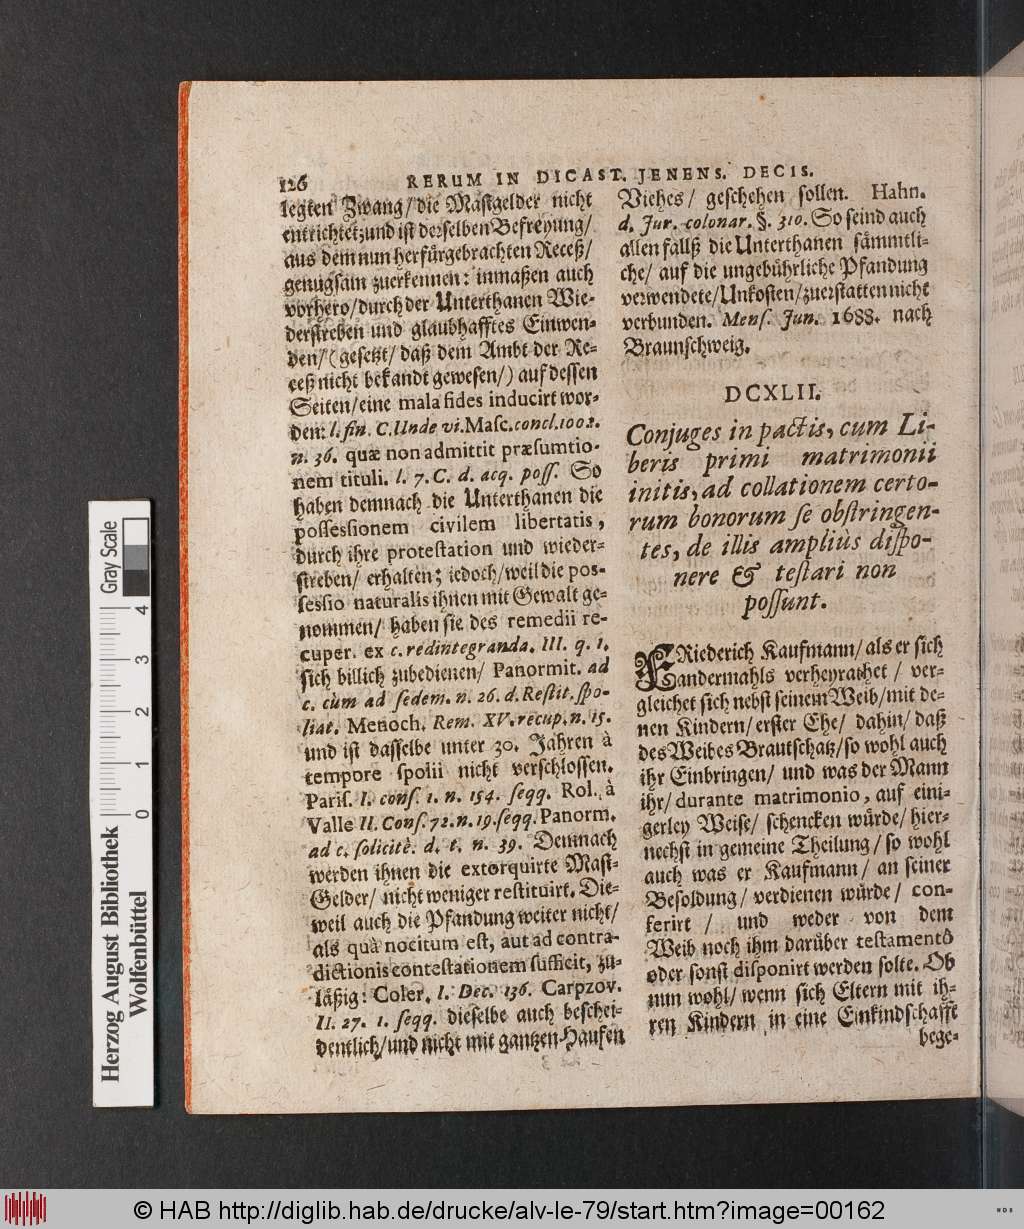 126 RERUM IN DICAST. JENENS. DECIS.
legten Zwang/die Mastgelder nicht
entrichtet; und ist derselben Befreyung/
aus dem nun herfürgebrachten Receß/
genugsam zuerkennen: inmaßen auch
vorhero/durch der Unterthanen Wie-
derstreben und glaubhafftes Einwen-
den/(gesetzt/daß dem Ambt der Re-
ceß nicht bekandt gewesen/) auf dessen
Seiten/eine mala fides inducirt wor-
den: l. fin. C. Unde vi. Masc. concl. 1002.
n. 36. quæ non admittit præsumtio-
nem tituli. l. 7. C. d. acq. poss. So
haben demnach die Unterthanen die
possessionem civilem libertatis,
durch ihre protestation und wieder-
streben/ erhalten; jedoch/weil die pos-
sessio naturalis ihnen mit Gewalt ge-
nommen/ haben sie des remedii re-
cuper. ex c. redintegranda. III. q. 1.
sich billich zubedienen/ Panormit. ad
c. cùm ad sedem. n. 26. d. Restit. spo-
liat. Menoch. Rem. XV. recup. n. 15.
und ist dasselbe unter 30. Jahren à
tempore spolii nicht verschlossen.
Paris. l. cons. 1. n. 154. seqq. Rol. à
Valle II. Cons. 72. n. 19. seqq. Panorm.
ad c. solicitè. d. t. n. 39. Demnach
werden ihnen die extorquirte Mast-
Gelder/ nicht weniger restituirt. Die-
weil auch die Pfandung weiter nicht/
als quà nocitum est, aut ad contra-
dictionis contestationem sufficit, zu-
läßig: Coler. l. Dec. 136. Carpzov.
II. 27. 1. seqq. dieselbe auch beschei-
dentlich/und nicht mit gantzen Haufen
Viehes/ geschehen sollen. Hahn.
d. Jur. colonar. §. 310. So seind auch
allen fallß die Unterthanen sämmtli-
che/ auf die ungebührliche Pfandung
verwendete/Unkosten/zuerstatten nicht
verbunden. Mens. Jun. 1688. nach
Braunschweig.
DCXLII.
Conjuges in pactis, cum Li-
beris primi matrimonii
initis, ad collationem certo-
rum bonorum se obstringen-
tes, de illis ampliùs dispo-
nere & testari non
possunt.
FRiederich Kaufmann/als er sich
andermahls verheyrathet / ver-
gleichet sich nebst seinem Weib/mit de-
nen Kindern/erster Ehe/ dahin/daß
des Weibes Brautschatz/so wohl auch
ihr Einbringen/ und was der Mann
ihr/ durante matrimonio, auf eini-
gerley Weise/ schencken würde/ hier-
nechst in gemeine Theilung/ so wohl
auch was er Kaufmann/ an seiner
Besoldung/ verdienen würde/ con-
ferirt / und weder von dem
Weib noch ihm darüber testamentò
oder sonst disponirt werden solte. Ob
nun wohl/ wenn sich Eltern mit ih-
ren Kindern in eine Einkindschafft
bege-
Herzog August Bibliothek
Wolfenbüttel
0 1 2 3 4
Gray Scale
© HAB http://diglib.hab.de/drucke/alv-le-79/start.htm?image=00162